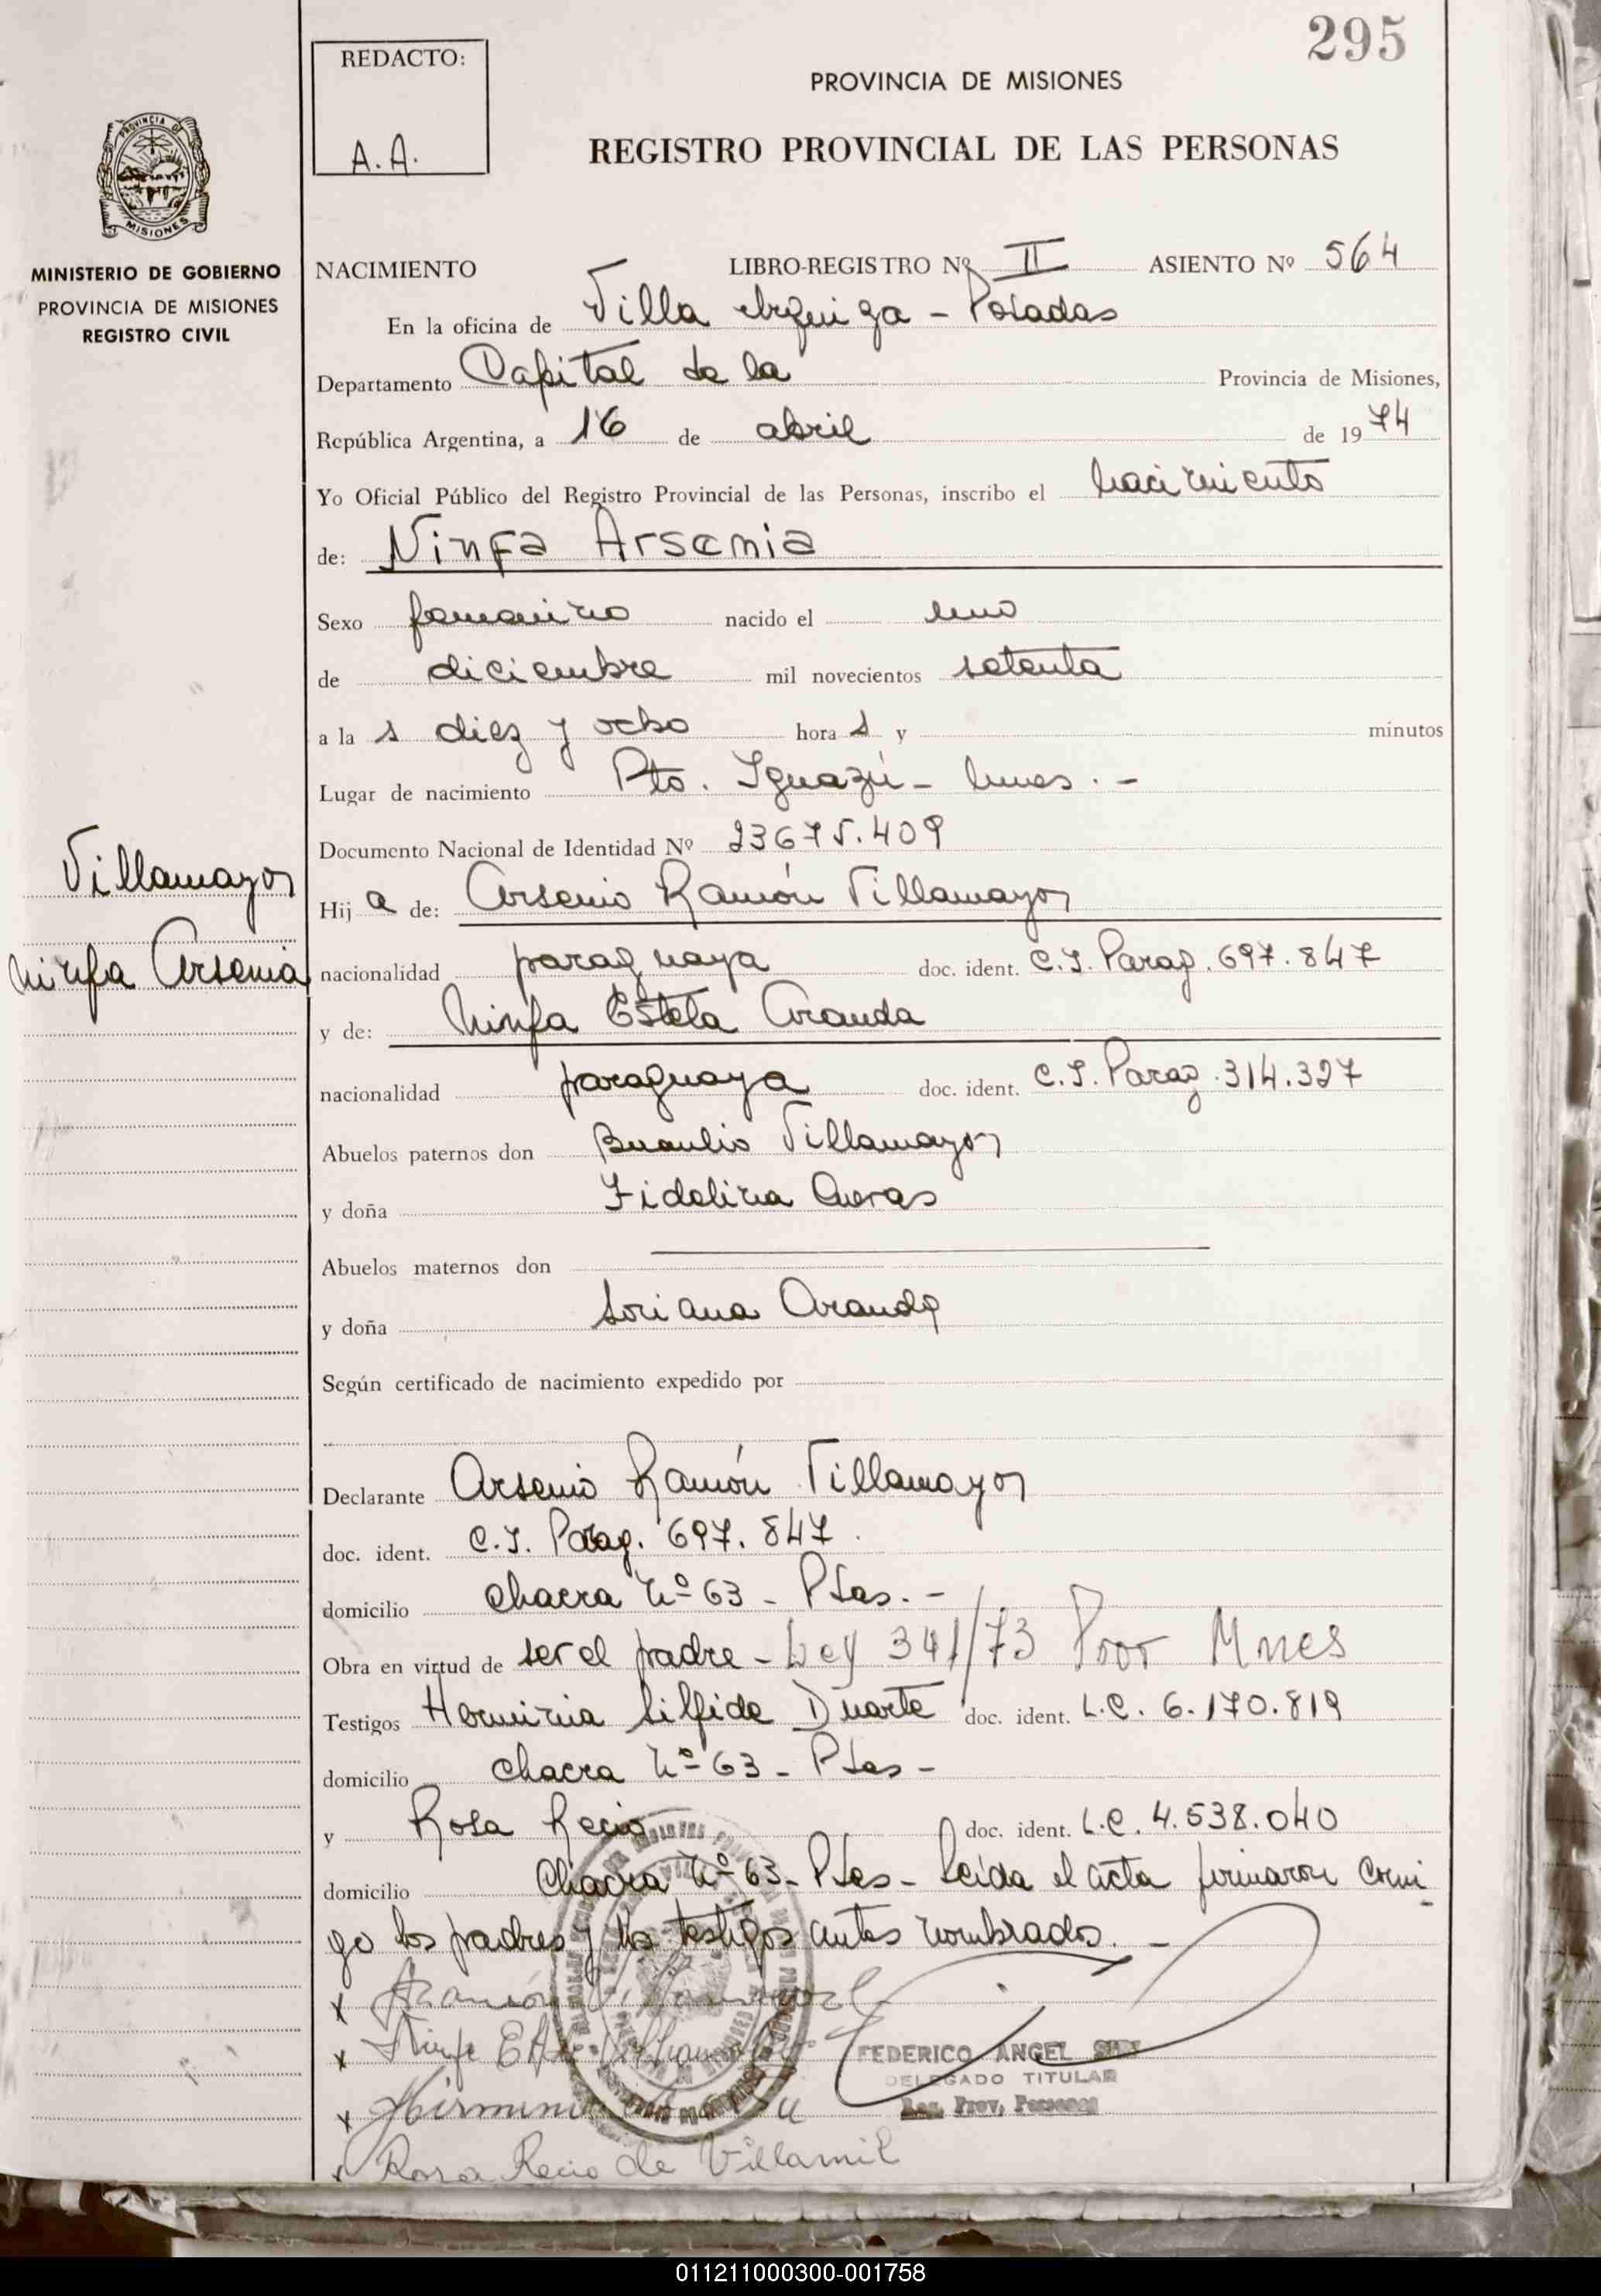 295
REDACTO:
A.A.
PROVINCIA DE MISIONES
REGISTRO PROVINCIAL DE LAS PERSONAS
PROVINCIA DE
MISIONES
MINISTERIO DE GOBIERNO
PROVINCIA DE MISIONES
REGISTRO CIVIL
NACIMIENTO LIBRO-REGISTRO Nº II ASIENTO Nº 564
En la oficina de Villa Urquiza - Posadas
Departamento Capital de la Provincia de Misiones,
República Argentina, a 16 de abril de 1974
Yo Oficial Público del Registro Provincial de las Personas, inscribo el nacimiento
de: Ninfa Arsenia
Sexo femenino nacido el uno
de diciembre mil novecientos setenta
a la s diez y ocho hora s y minutos
Lugar de nacimiento Pto. Iguazú - Mnes. -
Documento Nacional de Identidad Nº 23675.409
Villamayor
Ninfa Arsenia
Hij a de: Arsenio Ramón Villamayor
nacionalidad paraguaya doc. ident. C.I. Parag. 697.847
y de: Ninfa Estela Aranda
nacionalidad paraguaya doc. ident. C.I. Parag. 314.327
Abuelos paternos don Braulio Villamayor
y doña Fidelina
Abuelos maternos don
y doña Soriana Aranda
Según certificado de nacimiento expedido por
Declarante Arsenio Ramón Villamayor
doc. ident. C.I. Parag. 697.847.
domicilio Chacra Nº 63 - Pdas. -
Obra en virtud de ser el padre - Ley 341/73 Mnes
Testigos Herminia Silfide Duarte doc. ident. L.C. 6.170.819
domicilio Chacra Nº 63 - Pdas -
y Rosa Recio doc. ident. L.C. 4.538.040
domicilio Chacra Nº 63 - Pdas - Leída el acta firmaron conmi-
go los padres y los testigos antes nombrados. -
x Ramón
x Ninfa
x
x Rosa Recio de Villamil
FEDERICO ANGEL
DELEGADO TITULAR
Reg. Prov. Personas
011211000300-001758